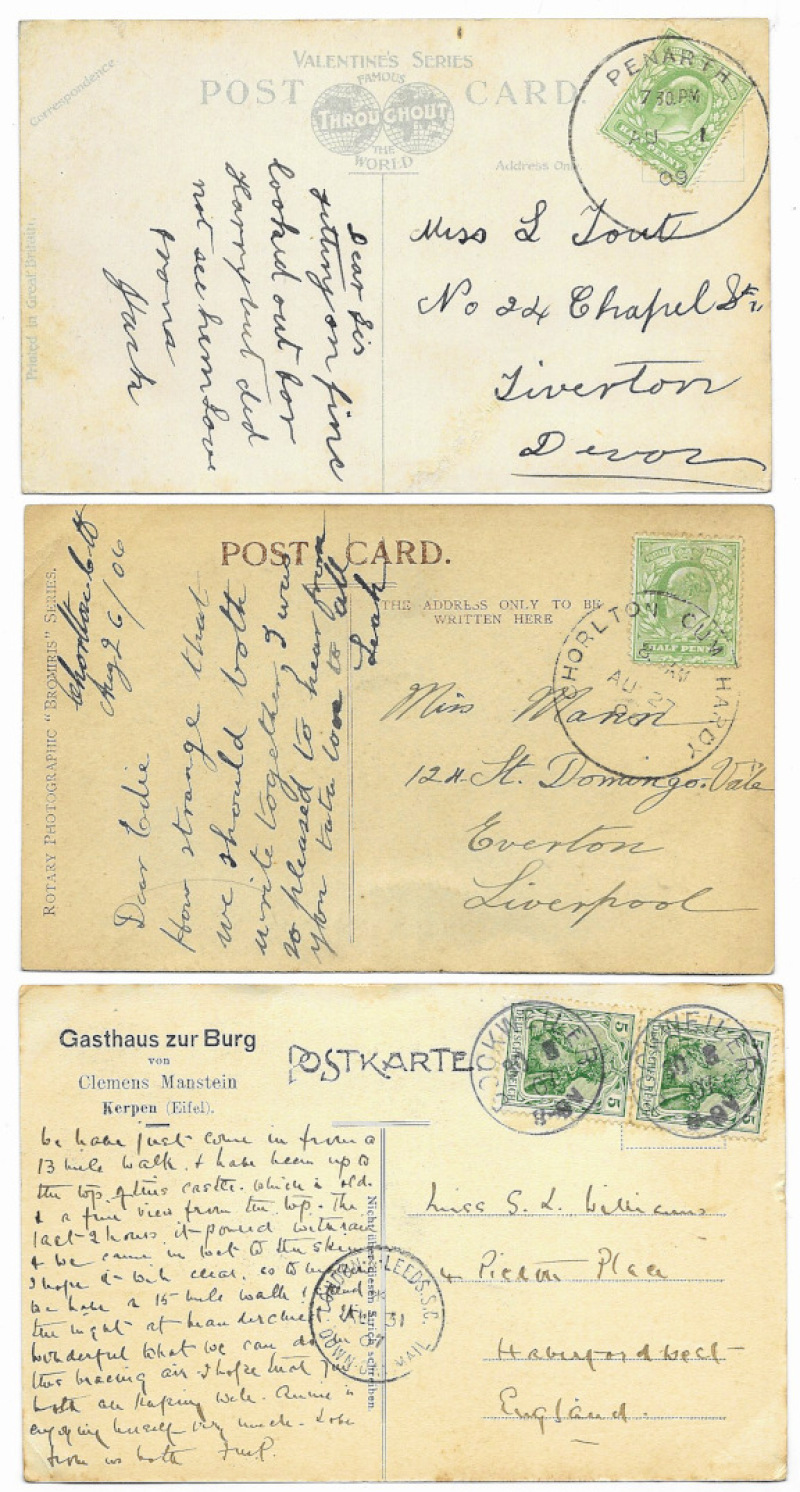 Correspondence
VALENTINE'S SERIES
POST CARD.
FAMOUS
THROUGHOUT
THE
WORLD
Address Only
Printed in Great Britain.
PENARTH
7 30.PM
AU 1
09
HALF PENNY
Dear Sis
gitting on fine
looked out for
Harry but did
not see him love
from
Jack
Miss L Tout
No 24 Chapel St
Tiverton
Devon
ROTARY PHOTOGRAPHIC "BROMIRIS" SERIES.
POST CARD.
THE ADDRESS ONLY TO BE
WRITTEN HERE
HALF PENNY
CHORLTON CUM HARDY
AM
AU 27
Aug 26/06
Dear Edie
How strange that
we should both
write together I was
so pleased to hear from
you tata love to all
Leah
Miss Mann
124 St. Domingo Vale
Everton
Liverpool
Gasthaus zur Burg
von
Clemens Manstein
Kerpen (Eifel).
POSTKARTE
5 DEUTSCHES REICH 5
We have just come in from a
13 mile walk, & have been up to
the top of this castle. which is old.
& a fine view from the top. The
last 2 hours it poured with rain
& we came in wet to the skin
I hope it will clear. as to
we have a 15 mile walk & spend
the night at Manderscheid
wonderful what we can do in
this bracing air. I hope that you
both are keeping well. Annie is
enjoying herself very much. Love
from us both
Nicht über diesen Strich schreiben.
LONDON & LEEDS.S.C.
31
07
DOWN MAIL
Miss S. L. Williams
4 Picton Place
Haverfordwest
England.